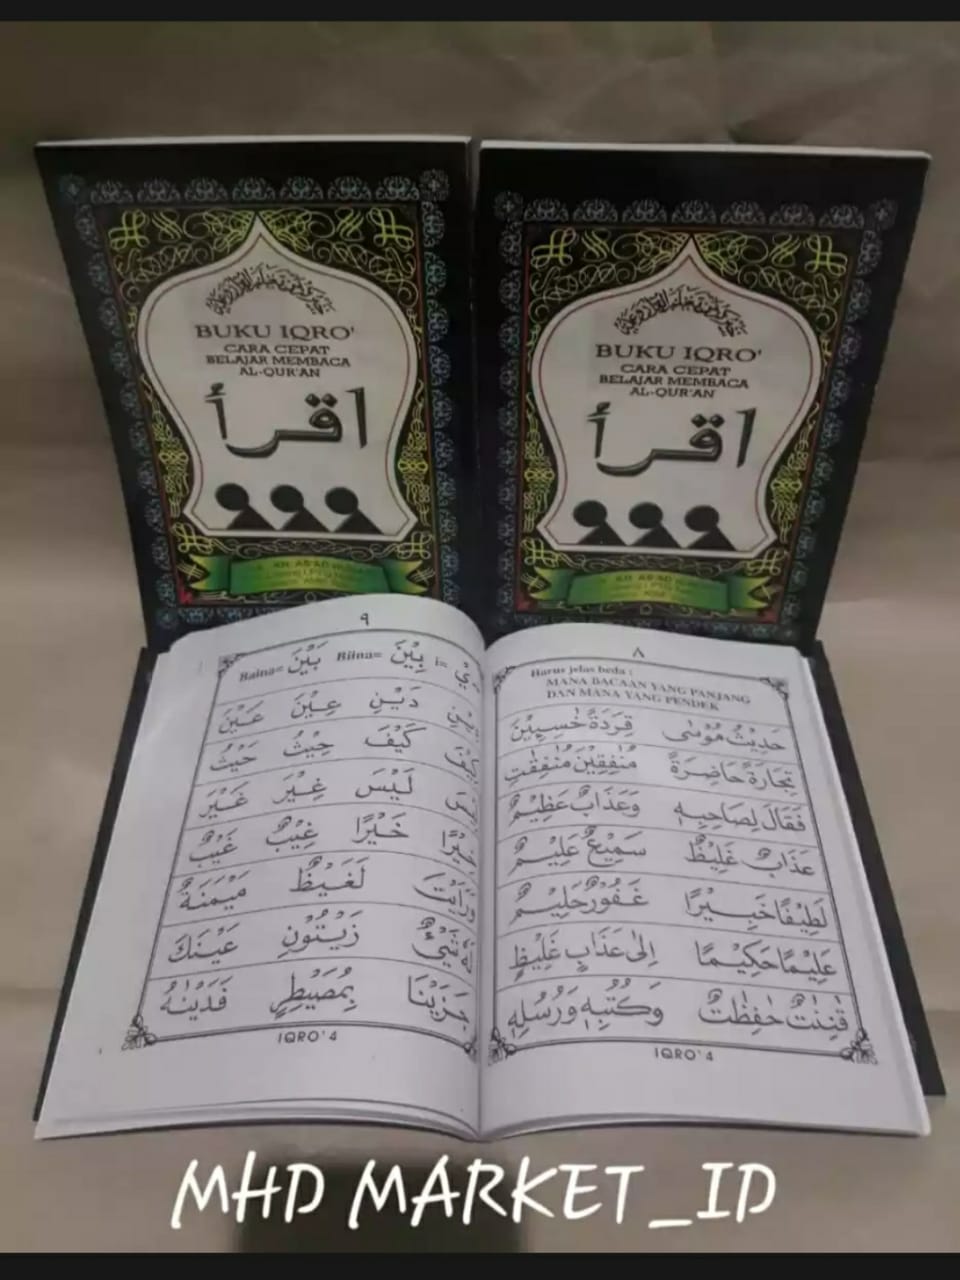 BUKU IQRO'
CARA CEPAT
BELAJAR MEMBACA
AL-QUR'AN
اقرأ
BUKU IQRO'
CARA CEPAT
BELAJAR MEMBACA
AL-QUR'AN
اقرأ
٨
Harus jelas beda :
MANA BACAAN YANG PANJANG
DAN MANA YANG PENDEK
حَدِيْثُ مُوْسٰى قِرَدَةً خٰسِـِٕيْنَ
تِجَارَةً حَاضِرَةً مُنٰفِقِيْنَ مُنٰفِقٰتِ
فَقَالَ لِصَاحِبِهٖ وَعَذَابٌ عَظِيْمٌ
عَذَابٌ غَلِيْظٌ سَمِيْعٌ عَلِيْمٌ
لَطِيْفًا خَبِيْرًا غَفُوْرٌ حَلِيْمٌ
عَلِيْمًا حَكِيْمًا اِلٰى عَذَابٍ غَلِيْظٍ
قٰنِتٰتٌ حٰفِظٰتٌ وَكُتُبِهٖ وَرُسُلِهٖ
IQRO' 4
٩
i= بِيْنَ =Biina بَيْنَ =Baina
دَيْنِ عِيْنَ عَيْنَ
كَيْفَ حِيْثُ حَيْثُ
لَيْسَ غِيْرَ غَيْرَ
خِيْرًا خَيْرًا غِيْبٌ غَيْبٌ
وَرَاَيْتَ لَغَيْظٌ مَيْمَنَةً
شَيْءٌ زَيْتُوْنِ عَيْنَكَ
جَزَيْنَا بِمُصَيْطِرٍ فَدَيْنٰهُ
IQRO' 4
MHD MARKET_ID